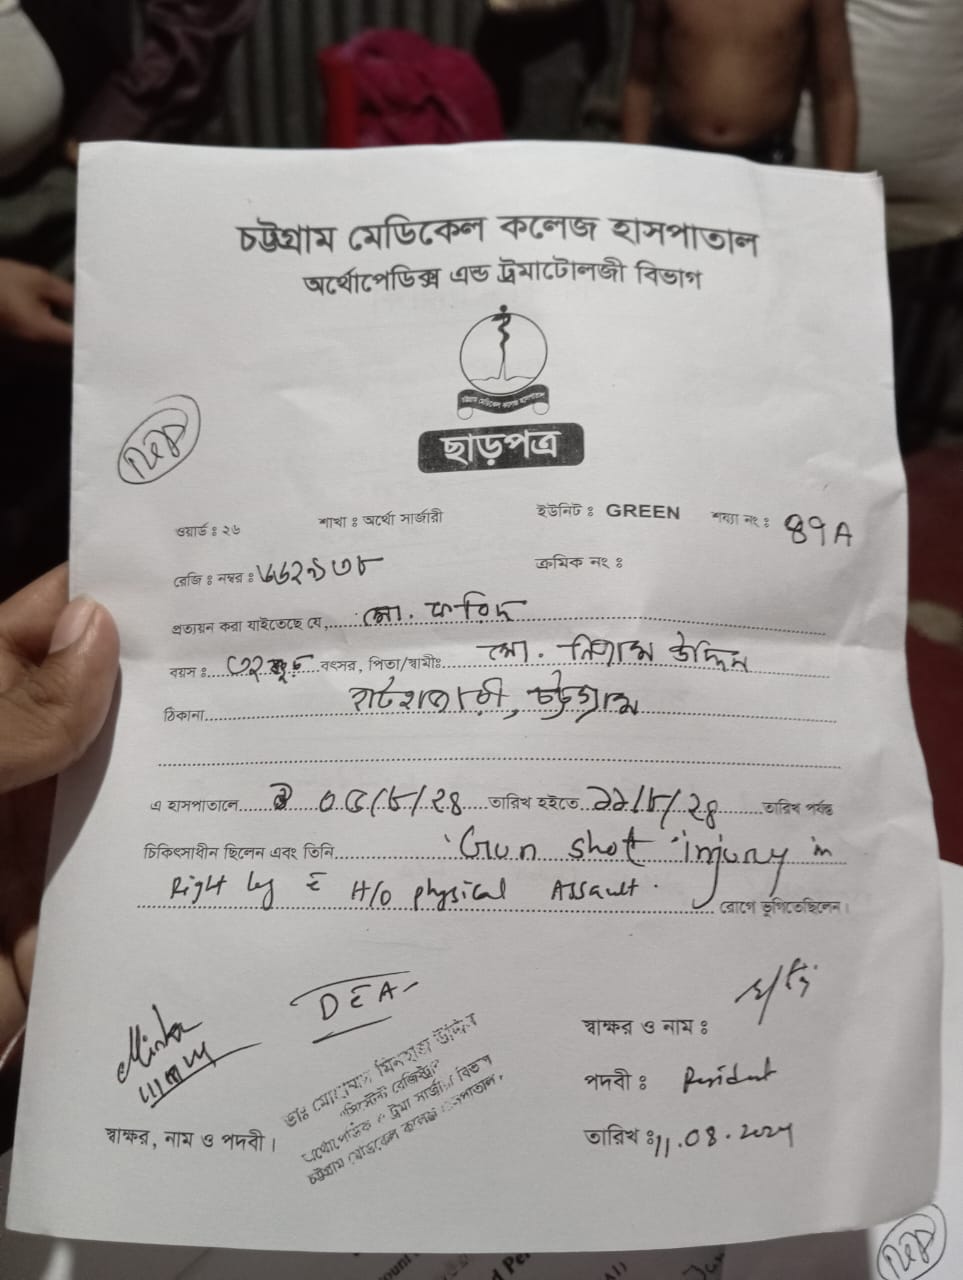 চট্টগ্রাম মেডিকেল কলেজ হাসপাতাল
অর্থোপেডিক্স এন্ড ট্রমাটোলজী বিভাগ
চট্টগ্রাম মেডিকেল কলেজ হাসপাতাল
ছাড়পত্র
ওয়ার্ড : ২৬ শাখা : অর্থো সার্জারী ইউনিট : GREEN শয্যা নং : 89A
রেজি : নম্বর : ৬৬২৯৩৮ ক্রমিক নং :
প্রত্যয়ন করা যাইতেছে যে, মো.
বয়স : বৎসর, পিতা/স্বামীঃ মো. উদ্দিন
ঠিকানা হাটহাজারী, চট্টগ্রাম
এ হাসপাতালে ০৫/৮/২৪ তারিখ হইতে ১১/৮/২৪ তারিখ পর্যন্ত
চিকিৎসাধীন ছিলেন এবং তিনি Gun shot injury in
Right leg c̄ H/O physical Assault. রোগে ভূগিতেছিলেন।
স্বাক্ষর ও নাম :
পদবী : Resident
স্বাক্ষর, নাম ও পদবী।
তারিখ : 11.08.2024